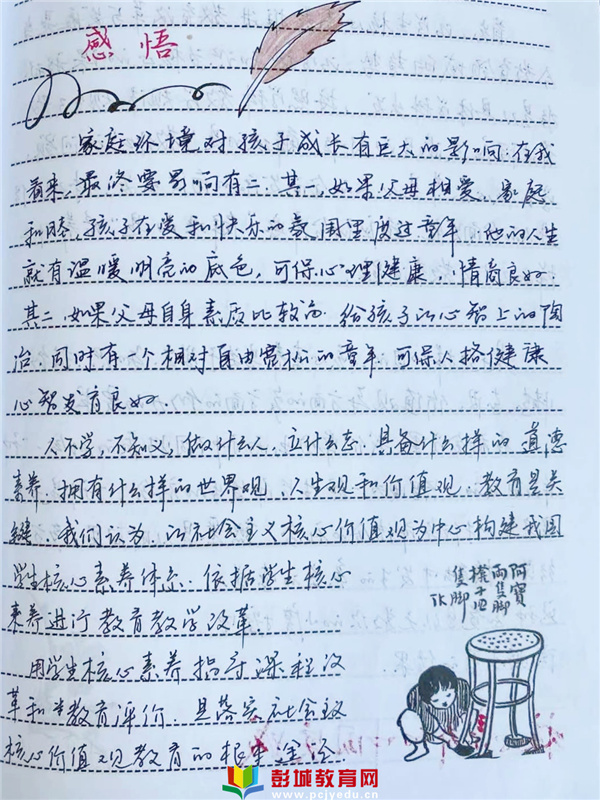 感悟
家庭环境对孩子成长有巨大的影响.在我
看来,最终要影响有二.其一,如果父母相爱.家庭
和睦,孩子在爱和快乐的氛围里度过童年.他的人生
就有温暖明亮的底色,可保心理健康,情商良好.
其二.如果父母自身素质比较高.给孩子以心智上的陶
冶.同时有一个相对自由宽松的童年.可保人格健康
心智发育良好.
人不学,不知义,做什么人.立什么志.具备什么样的道德
素养.拥有什么样的世界观,人生观和价值观.教育是关
键.我们认为,以社会主义核心价值观为中心构建我国
学生核心素养体系.依据学生核心
素养进行教育教学改革.
用学生核心素养指导课程改
革和教育评价.是落实社会主义
核心价值观教育的根本途径.
阿寶
兩隻腳
櫈子四
隻腳
彭城教育网
www.pcjyedu.cn